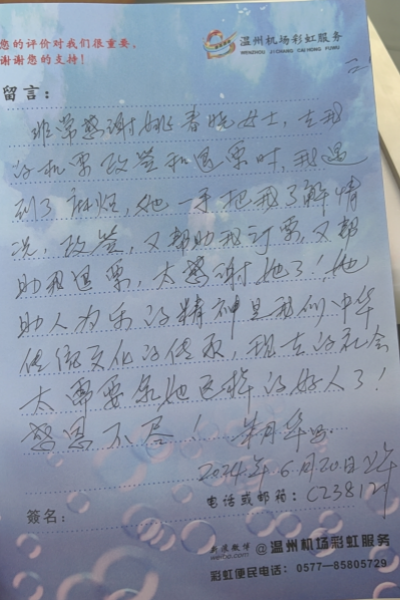 您的评价对我们很重要。
谢谢您的支持！
温州机场彩虹服务
WENZHOU JICHANG CAIHONG FUWU
留言：
非常感谢姚春晓女士，在我
的机票改签和退票时，我遇
到了麻烦，她一手把我了解情
况，改签，又帮助我订票，又帮
助我退票，太感谢她了！她
助人为乐的精神是我们中华
传统文化的传承，现在的社会
太需要象她这样的好人了！
感恩不尽！
2024年6月20日上午
电话或邮箱：C238121
簽名：
新浪微博
weibo.com
@温州机场彩虹服务
彩虹便民电话：0577—85805729